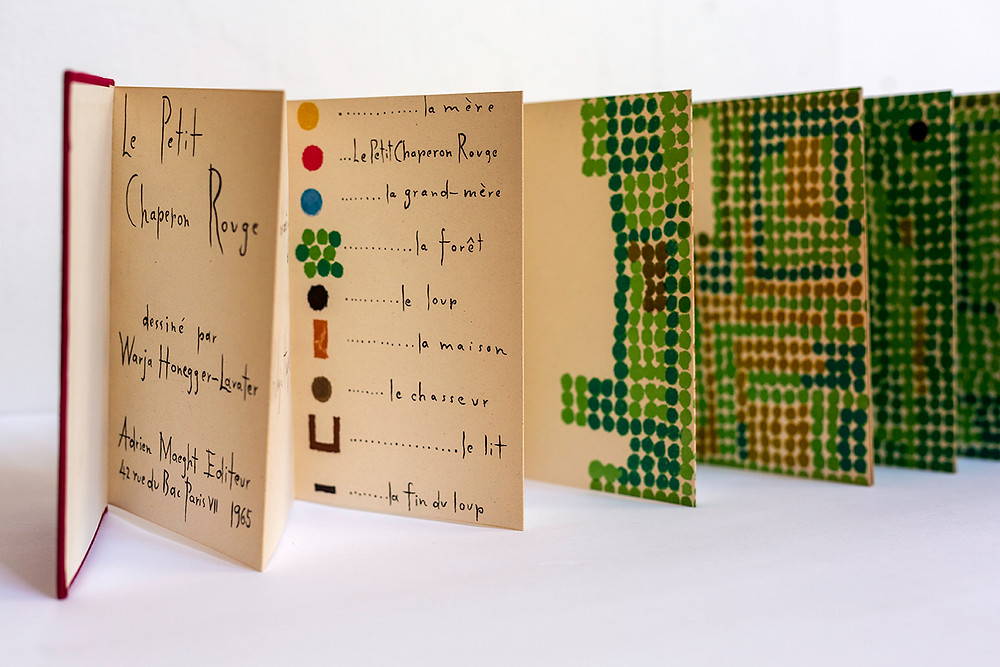 Le Petit
Chaperon Rouge
dessiné par
Warja Honegger-Lavater
Adrien Maeght Editeur
42 rue du Bac Paris VII 1965
............la mère
...Le Petit Chaperon Rouge
........la grand-mère
............la forêt
..........le loup
............la maison
.......le chasseur
..................le lit
........la fin du loup